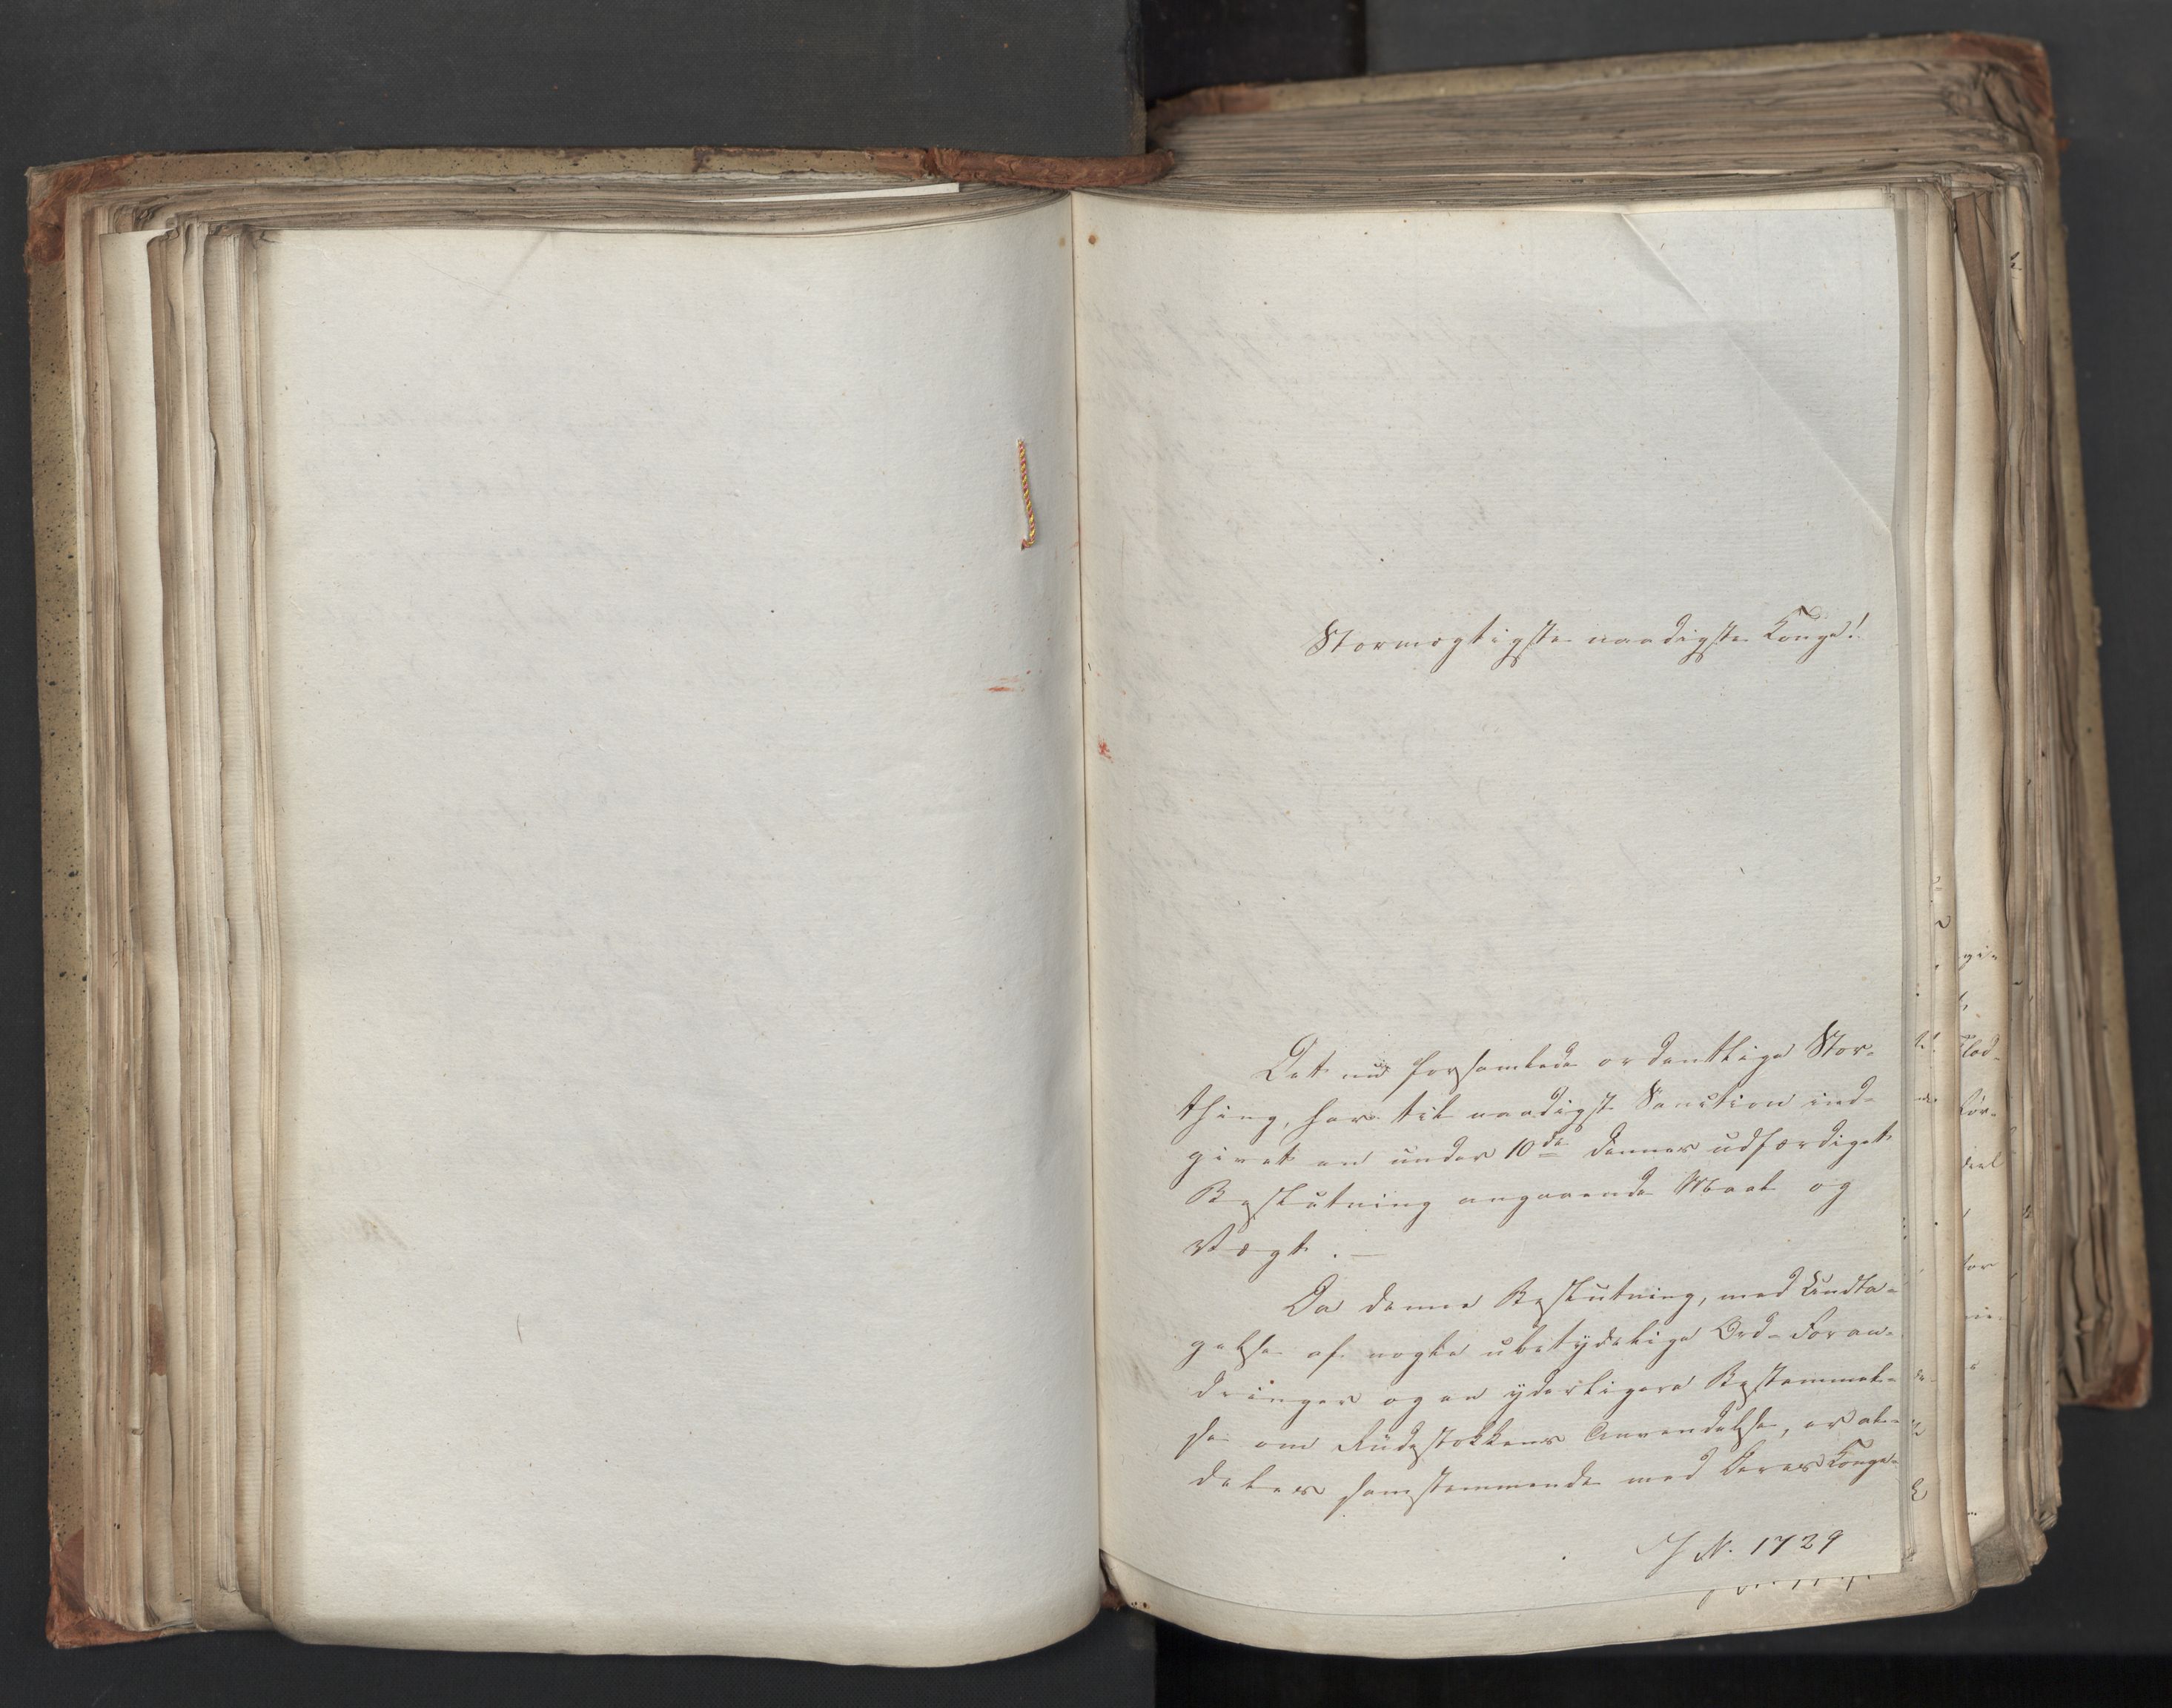 Stormægtigste naadigste Konge!
Det nu forsamlede ordentlige Stor-
thing, har til naadigst Sanction ind-
givet en under 10de dennes udfærdiget
Beslutning angaaende Maal og
Vægt. —
Da denne Beslutning, med Undta-
gelse af nogle ubetydelige Ord-Foran-
dringer og en yderligere Bestemmel-
se om Rüdestokkens Anvendelse, er al-
deles samstemmende med Deres Konge-
J N. 1729